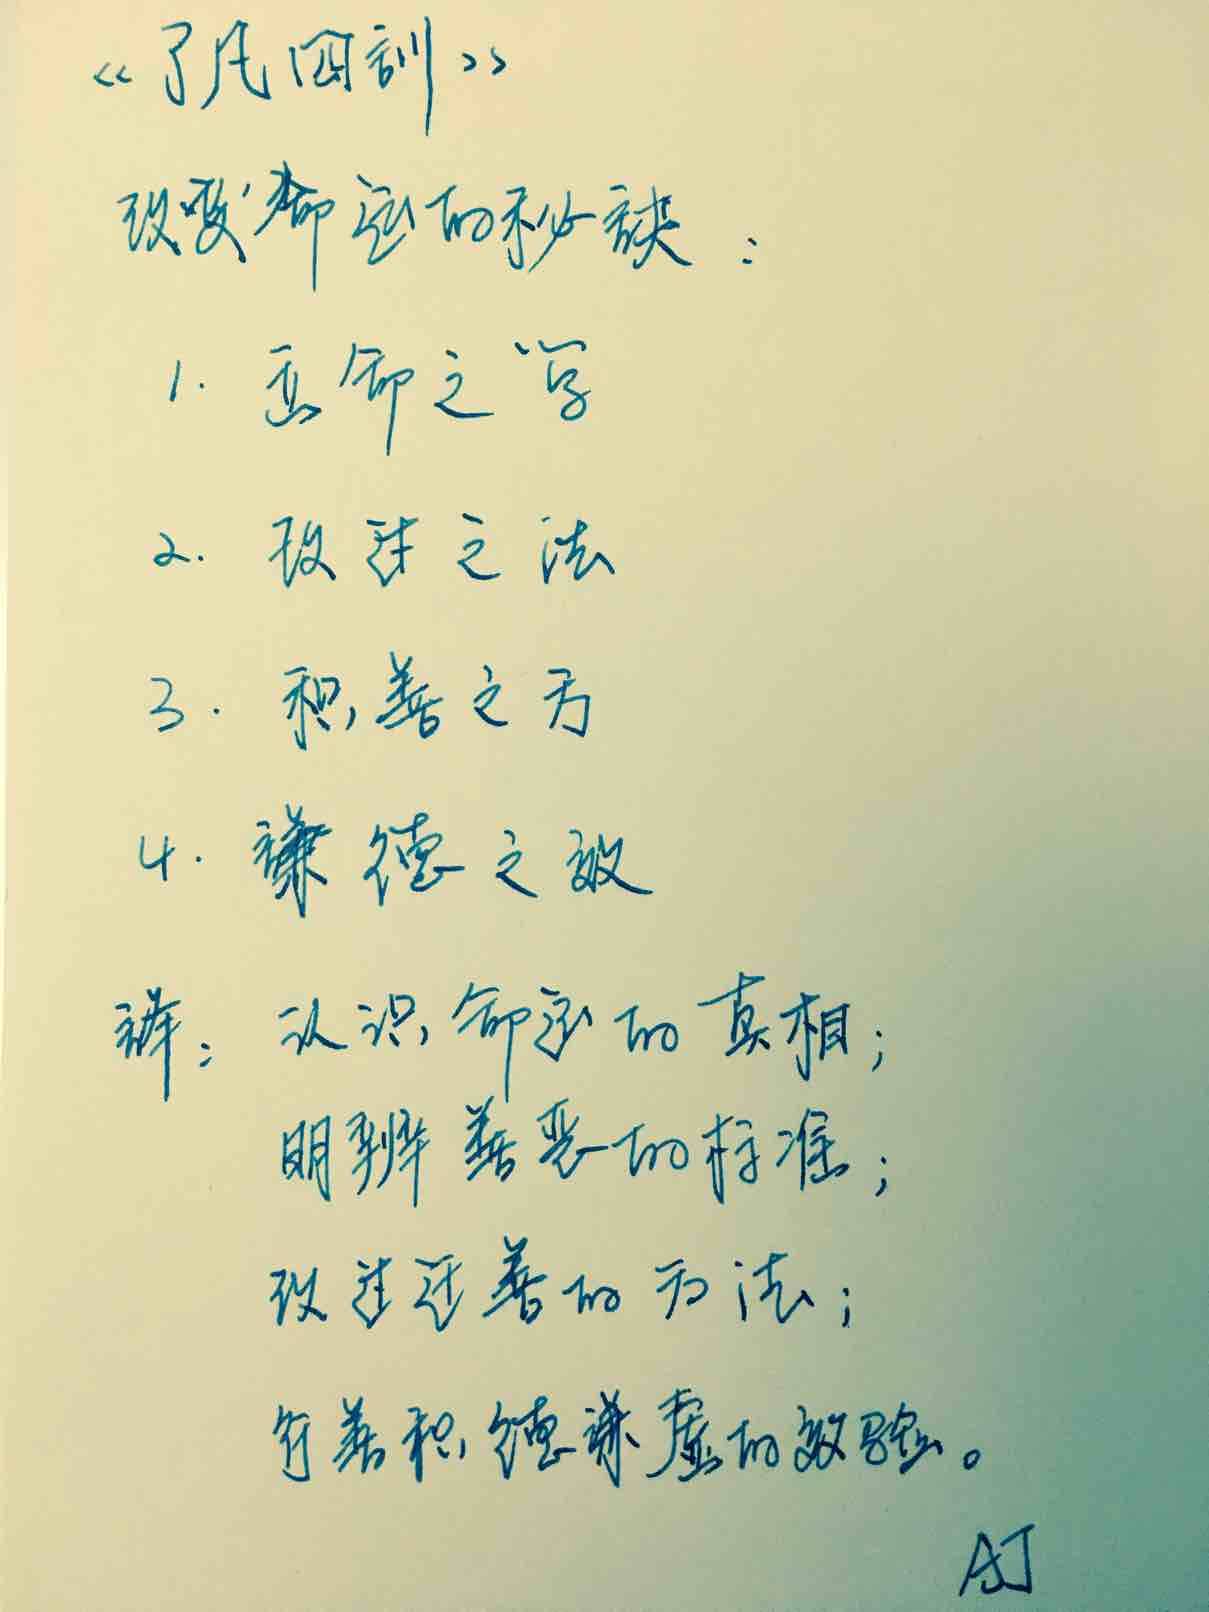 《了凡四训》
改变命运的秘诀：
1. 立命之学
2. 改过之法
3. 积善之方
4. 谦德之效
详：认识命运的真相；
明辨善恶的标准；
改过迁善的方法；
行善积德谦虚的效验。
AJ